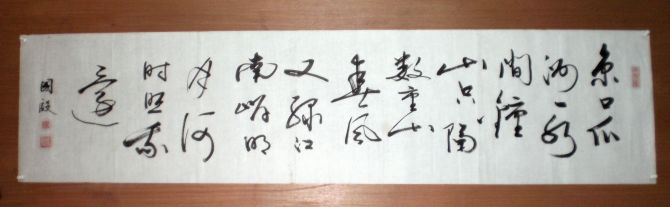 京口瓜
洲一水
間鐘
山只隔
數重山
春風
又綠江
南岸明
月何
時照我
還
國